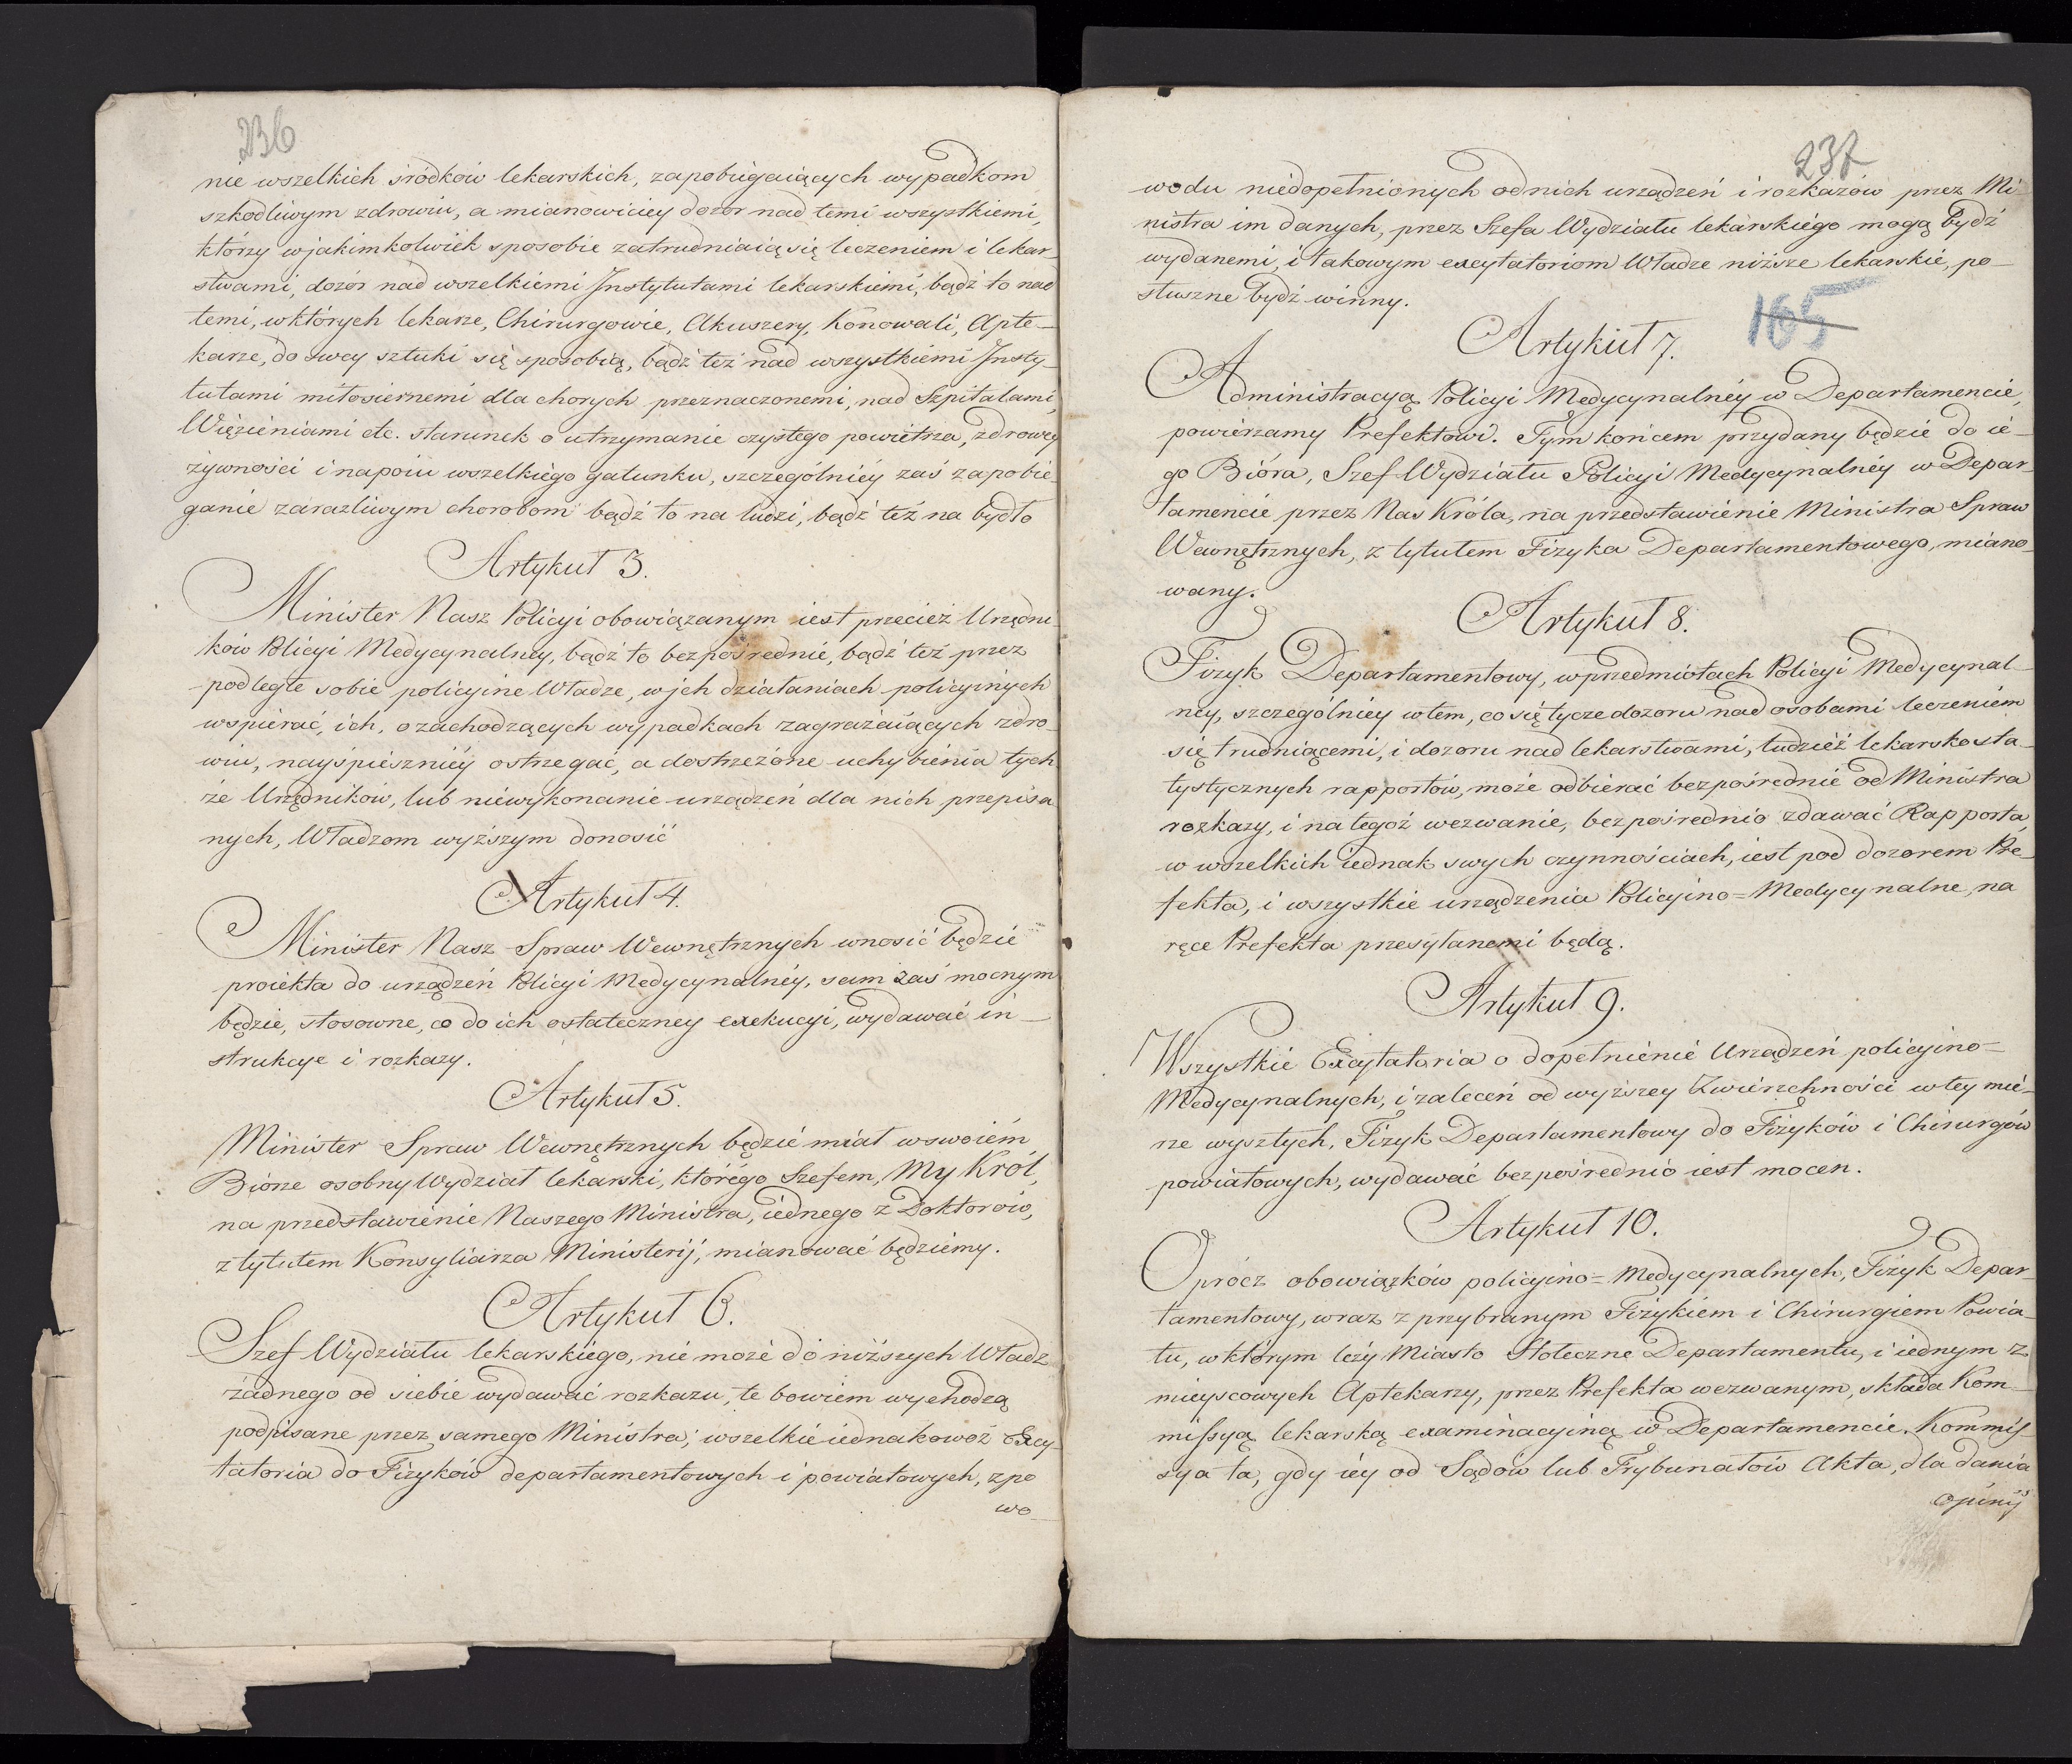 236
nie wszelkich srodkow lekarskich, zapobiegaiących wypadkom
szkodliwym zdrowiu, a mianowiciey dozor nad temi wszystkiemi,
którzy w jakimkolwiek sposobie zatrudniaią się leczeniem i lekar-
stwami, dozór nad wszelkiemi Instytutami lekarskiemi, bądź to nad
temi, w których lekarze, Chirurgowie, Akuszery, Konowali, Apte-
karze, do swey sztuki się sposobią, bądź też nad wszystkiemi Insty-
tutami miłosiernemi dla chorych przeznaczonemi, nad Szpitalami,
Więzieniami etc. starunek o utrzymanie czystego powietrza, zdrowey
żywności i napoiu wszelkiego gatunku, szczególniéy zaś zapobie-
ganie zarazliwym chorobom bądź to na ludzi, bądź też na bydło
Artykuł 3.
Minister Nasz Policyi obowiązanym iest przecież Urzędni-
kow Policyi Medycynalney, bądź to bezpośrednie, bądź też przez
podległe sobie policyine Władze, w ich działaniach policyinych
wspierać, ich, o zachodzących wypadkach zagrażaiących zdro-
wiu, nayśpieszniéy ostrzegać, a dostrzeżone uchybienia tych-
że Urzędników, lub niewykonanie urządzeń dla nich przepisa-
nych, Władzom wyższym donosić
Artykuł 4.
Minister Nasz Spraw Wewnętrznych wnosić będzie
proiekta do urządzeń Policyi Medycynalnéy, sam zaś mocnym
będzie, stosowne, co do ich ostateczney exekucyi, wydawać in-
strukcye i rozkazy.
Artykuł 5.
Minister Spraw Wewnętrznych będzie miał w swoiém
Biórze osobny Wydział lekarski, którégo Szefem, My Król,
na przedstawienie Naszego Ministra, iednego z Doktorów,
z tytułem Konsyliarza Ministerij, mianować będziemy.
Artykuł 6.
Szef Wydziału lekarskiego, nie może do niższych Władz
żadnego od siebie wydawać rozkazu, te bowiem wychodzą
podpisane przez samego Ministra; wszelkie iednakowoż Excy-
tatoria do Fizyków departamentowych i powiatowych, z po
wo
237
wodu niedopełnionych od nich urządzeń i rozkazów przez Mi-
nistra im danych, przez Szefa Wydziału lekarskiégo mogą bydź
wydanemi, i takowym excytatoriom Władze niższe lekarskie, po-
słuszne bydź winny.
165
Artykuł 7.
Administracyą Policyi Medycynalnéy w Departamencie,
powierzamy Prefektowi. Tym końcem przydany będzie do ie-
go Bióra, Szef Wydziału Policyi Medycynalnéy w Depar-
tamencie przez Nas Króla, na przedstawienie Ministra Spraw
Wewnętrznych, z tytułem Fizyka Departamentowego, miano-
wany.
Artykuł 8.
Fizyk Departamentowy, w przedmiotach Policyi Medycynal-
ney, szczególniey w tem, co się tycze dozoru nad osobami leczeniem
się trudniącemi, i dozoru nad lekarstwami, tudzież lekarsko sta-
tystycznych rapportów, może odbierać bezpośrednie od Ministra
rozkazy, i na tegoż wezwanie, bezpośrednio zdawać Rapporta,
w wszelkich iednak swych czynnościach, iest pod dozorem Pre-
fekta, i wszystkie urządzenia Policyino=Medycynalne, na
ręce Prefekta przesyłanemi będą.
Artykuł 9.
Wszystkie Excytatoria o dopełnienié Urządzeń policyino=
Medycynalnych, i zaleceń od wyższey Zwierzchności w tey mie-
rze wyszłych, Fizyk Departamentowy do Fizyków i Chirurgów
powiatowych, wydawać bezpośrednio iest mocen.
Artykuł 10.
Oprócz obowiązków policyino=Medycynalnych, Fizyk Depar-
tamentowy, wraz z przybranym Fizykiem i Chirurgiem Powia-
tu, w którym leży Miasto Stołeczne Departamentu, i iednym z
mieyscowych Aptekarzy, przez Prefekta wezwanym, składa Kom-
missyą lekarską examinacyiną w Departamencie. Kommis-
sya ta, gdy iéy od Sądów lub Trybunałów Akta, dla dania
opinij